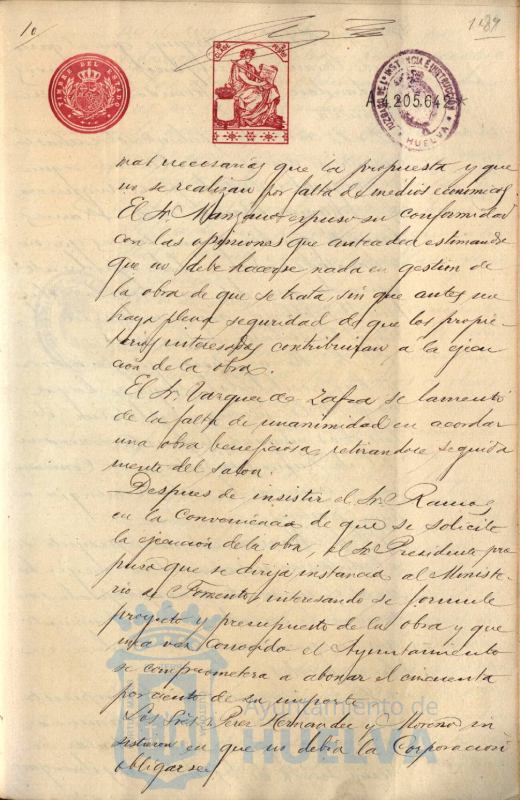 10
189
TIMBRE DEL ESTADO
JUZGADO DE 1ª INSTANCIA E INSTRUCCION
HUELVA
A4.205.642*
mas necesarias que la propuesta y que
no se realizan por falta de medios económicos
El Sr. Manzano expuso su conformidad
con las opiniones que anteceden estimando
que no debe hacerse nada en gestión de
la obra de que se trata, sin que antes se
haya plena seguridad de que los propie-
tarios interesados contribuirán a la ejecu
ción de la obra.
El Sr. Vazquez de Zafra se lamentó
de la falta de unanimidad en acordar
una obra beneficiosa, retirandose seguida
mente del salon.
Despues de insistir el Sr. Ramos
en la conveniencia de que se solicite
la ejecución de la obra, el Sr. Presidente pro
puso que se dirija instancia al Ministe-
rio de Fomento, interesando se formule
proyecto y presupuesto de la obra y que
una vez conocido el Ayuntamiento
se comprometera a abonar el cincuenta
por ciento de su importe.
Los Sres. Perez Hernandez y Moreno in
sistieron en que no debia la Corporación
obligarse
Ayuntamiento de
HUELVA